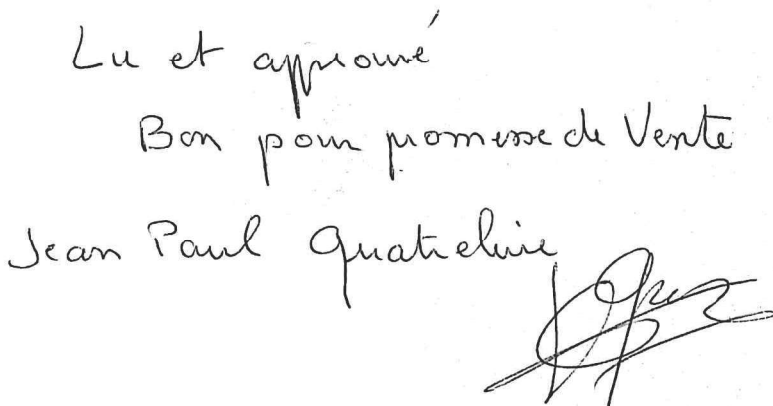 Lu et approuvé
Bon pour promesse de Vente
Jean Paul Quatrelivre